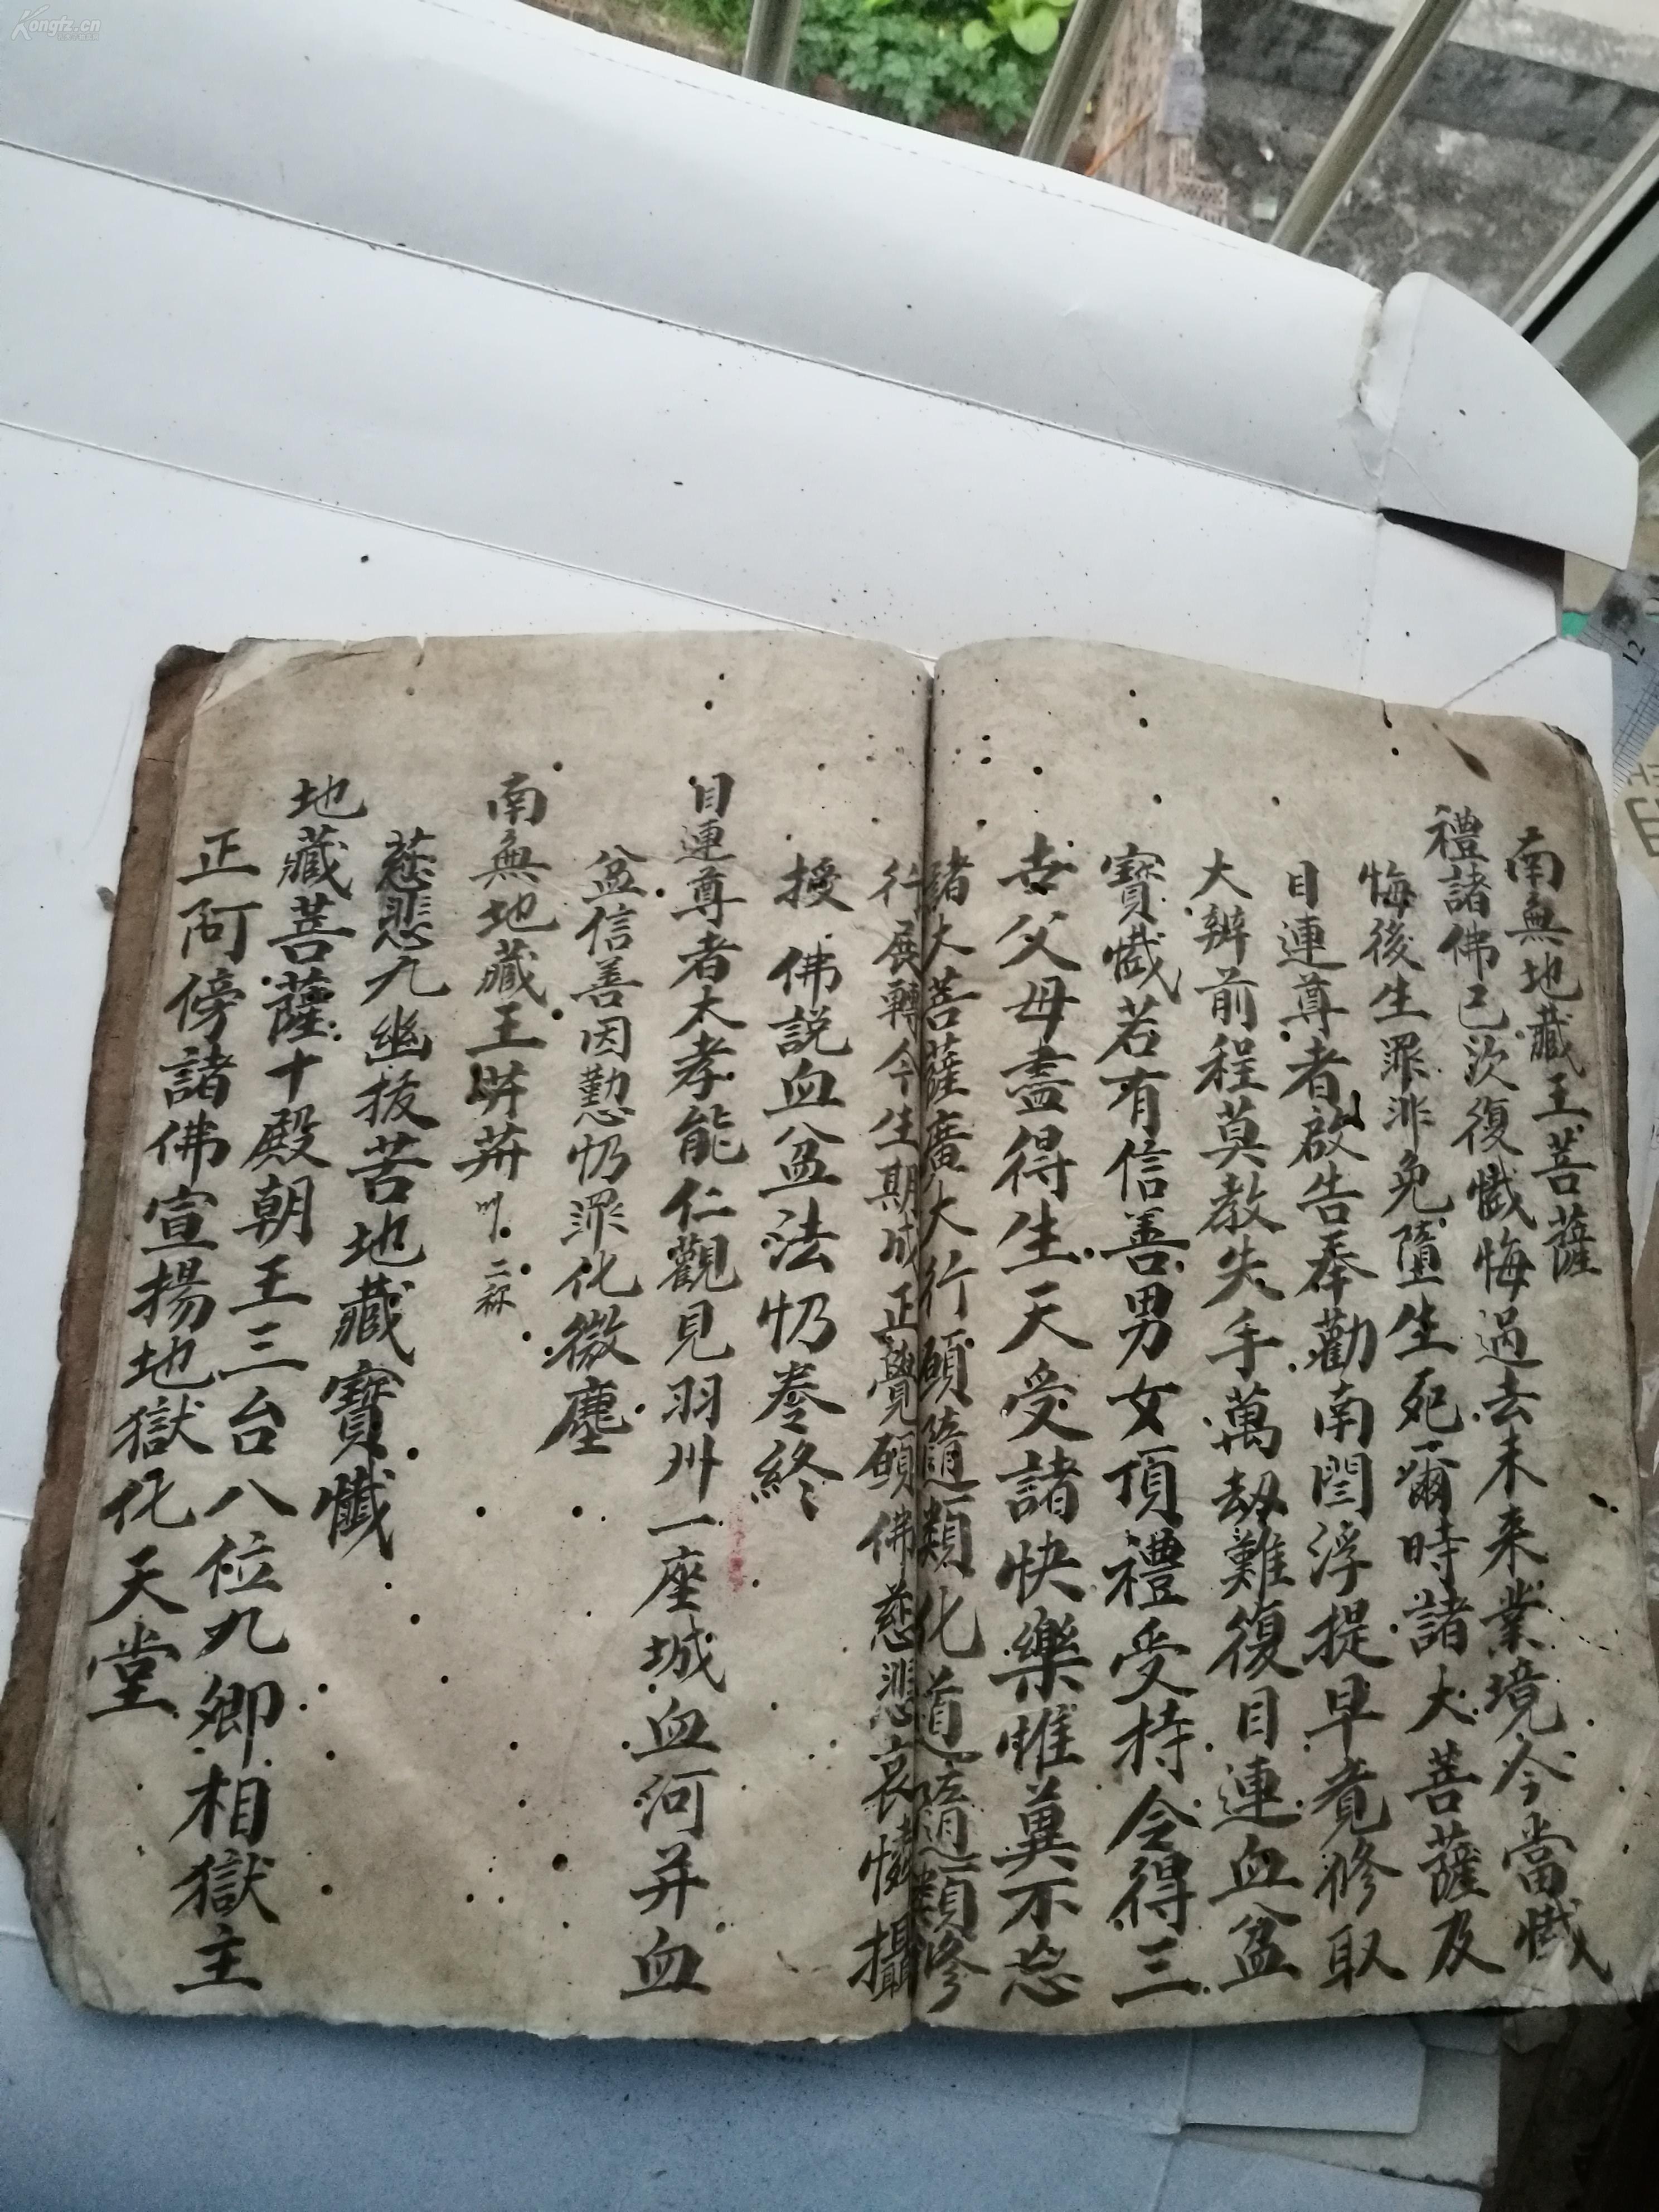 南無地藏王菩薩
禮諸佛已次復懺悔過去未來業境今當懺
悔後生罪非免墮生死爾時諸大菩薩及
目連尊者啟告奉勸南閻浮提早覓修取
大辦前程莫教失手萬劫難復目連血盆
寶懺若有信善男女頂禮受持令得三
世父母盡得生天受諸快樂惟冀不忘
諸大菩薩廣大行願隨類化道隨類修
行展轉今生期成正覺願佛慈悲哀憐攝
授 佛説血盆法懺卷終
目連尊者太孝能仁觀見羽州一座城血河并血
盆信善因懃懺罪化微塵
南無地藏王
二称
慈悲九幽拔苦地藏寶懺
地藏菩薩十殿朝王三台八位九卿相獄主
正阿傍諸佛宣揚地獄化天堂
Kongfz.cn
12